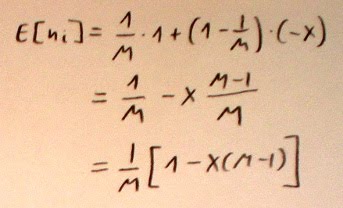 E[n_i] = \frac{1}{M} \cdot 1 + (1 - \frac{1}{M}) \cdot (-x)
= \frac{1}{M} - x \frac{M-1}{M}
= \frac{1}{M} [1 - x(M-1)]